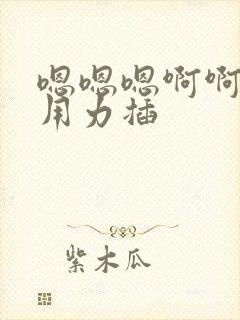 嗯嗯嗯啊啊
用力插
紫木瓜